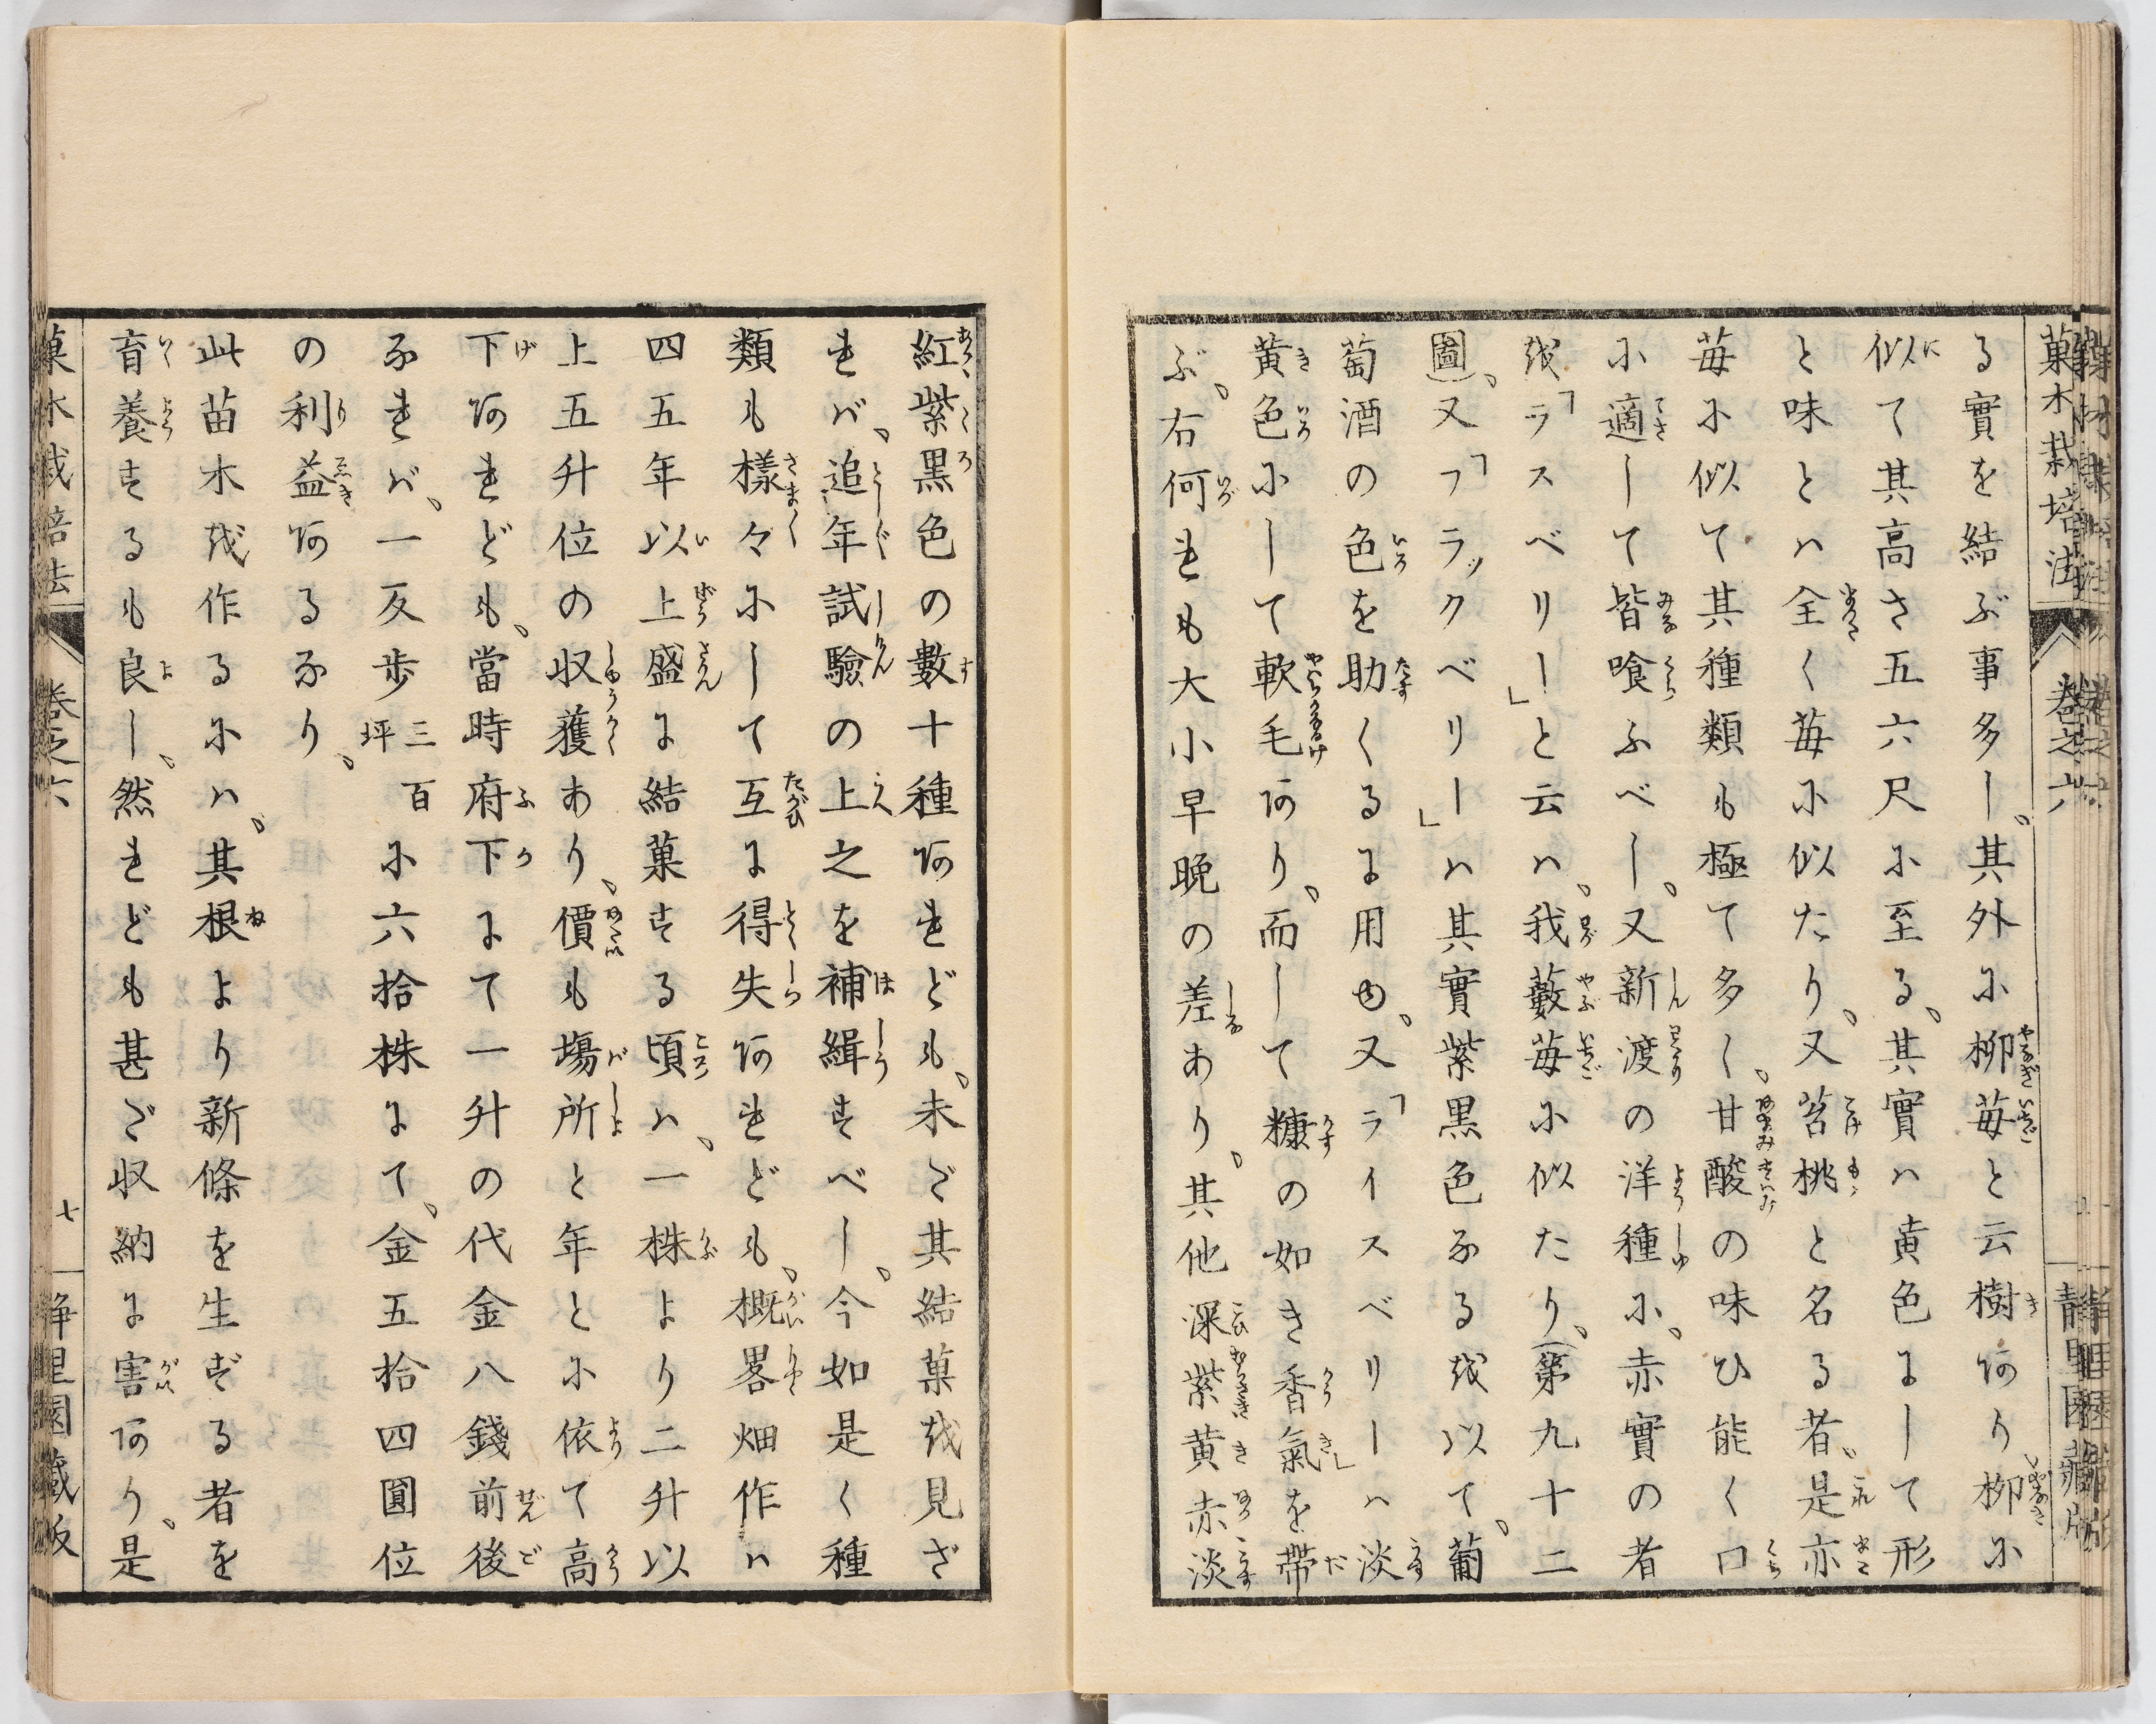 菓木栽培法 巻之六 靜里園藏版
る實を結ぶ事多し、其外に柳苺と云樹あり、柳に
似て其高さ五六尺に至る、其實ハ黄色にして形
と味とハ全く苺に似たり、又苔桃と名る者、是亦
苺に似て其種類も極て多く、甘酸の味ひ能く口
に適して皆喰ふべし、又新渡の洋種に、赤實の者
を「ラスベリー」と云ハ、我藪苺に似たり、(第九十二
圖)、又「フラックベリー」ハ其實紫黒色なるを以て、葡
萄酒の色を助くるに用ゆ、又「ライスベリーハ淡
黄色にして軟毛あり、而して糠の如き香氣」を帶
ぶ、右何れも大小早晩の差あり、其他深紫黄赤淡
紅紫黒色の數十種あれども、未ざ其結菓を見ざ
れバ、追年試驗の上之を補緝すべし、今如是く種
類も樣々にして互に得失あれども、概畧畑作ハ
四五年以上盛に結菓する頃ハ、一株より二升以
上五升位の収獲あり、價も塲所と年とに依て高
下あれども、當時府下にて一升の代金八錢前後
なれバ、一反歩三百坪に六拾株にて、金五拾四圓位
の利益あるなり、
此苗木を作るにハ、其根より新條を生ずる者を
育養するも良し、然れども甚ざ収納に害あり、是
菓木栽培法 巻之六 七 靜里園藏版